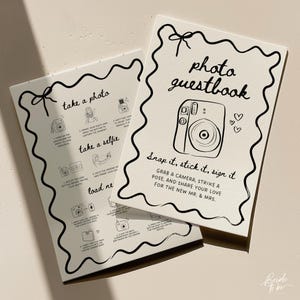 photo
guestbook
Snap it, stick it, sign it
GRAB A CAMERA, STRIKE A
POSE, AND SHARE YOUR LOVE
FOR THE NEW MR. & MRS.
take a photo
take a selfie
load ne
Bride
to be